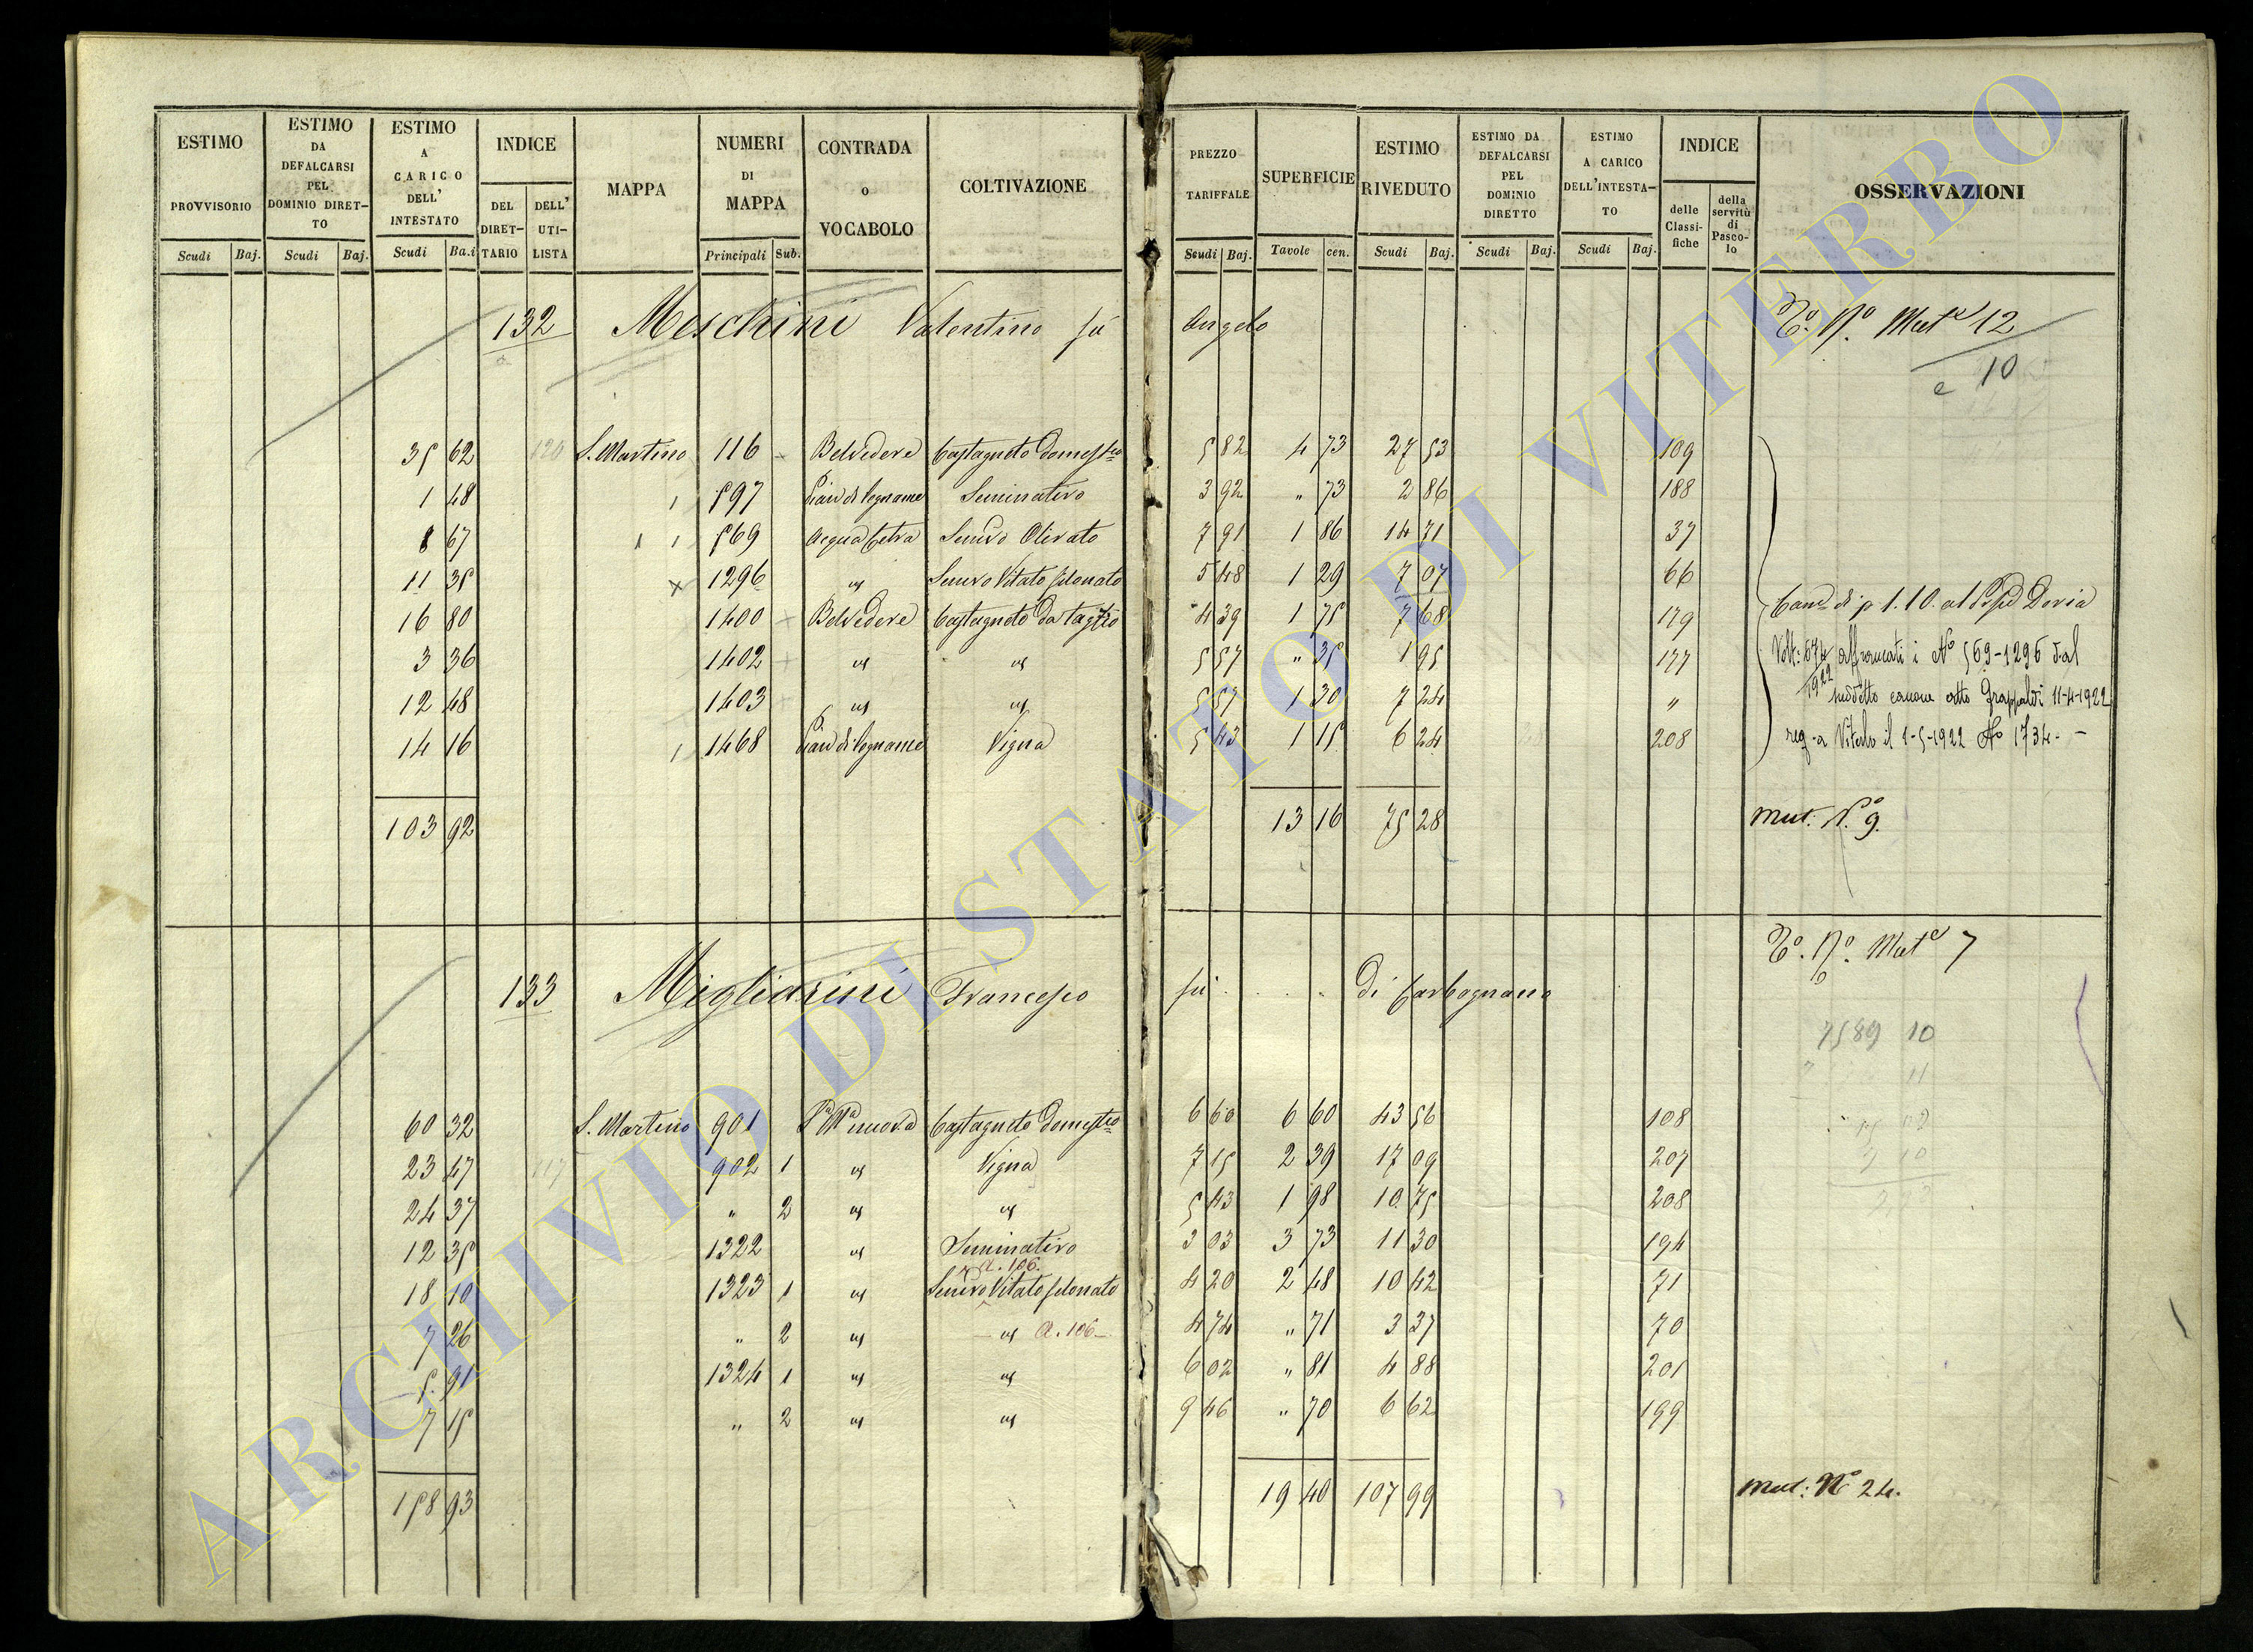 ESTIMO PROVVISORIO Scudi Baj.
ESTIMO DA DEFALCARSI PEL DOMINIO DIRET- TO Scudi Baj.
ESTIMO A CARICO DELL' INTESTATO Scudi Ba.i
INDICE DEL DIRET- TARIO DELL' UTI- LISTA
MAPPA
NUMERI DI MAPPA Principali Sub.
CONTRADA O VOCABOLO
COLTIVAZIONE
PREZZO TARIFFALE Scudi Baj.
SUPERFICIE Tavole cen.
ESTIMO RIVEDUTO Scudi Baj.
ESTIMO DA DEFALCARSI PEL DOMINIO DIRETTO Scudi Baj.
ESTIMO A CARICO DELL'INTESTA- TO Scudi Baj.
INDICE delle Classi- fiche della servitù di Pasco- lo
OSSERVAZIONI
132 Meschini Valentino fù Angelo
Mut.e 12
e 10
35 62 120 S. Martino 116 Belvedere Castagneto Domestco 5 82 4 73 27 53 109
1 48 597 Pian di Legname Seminativo 3 92 " 73 2 86 188
8 67 569 Acqua Tetra Semivo Olivato 7 91 1 86 14 71 37
11 35 1296 " Semivo Vitato 5 48 1 29 7 07 66
16 80 1400 Belvedere Castagneto Da Taglio 4 39 1 75 7 68 179
3 36 1402 " " 5 57 " 35 1 95 177
12 48 1403 " " 5 57 1 30 7 24 "
14 16 1468 Pian di Legname Vigna 5 43 1 15 6 24 208
Doria
Volt: 674/1922 affrancati i No 569-1296 dal
suddetto canone atto 11-4-1922
reg. a Viterbo il 1-5-1922 No 1734.-
103 92 13 16 75 28
Mut. N.o 9.
133 Migliorini Francesco fù . . . di Carbognano
Mut.e 7
7589 10
11
60 32 S. Martino 901 nuova Castagneto Domestco 6 60 6 60 43 56 108
23 47 117 902 1 " Vigna 7 15 2 39 17 09 207
24 37 " 2 " " 5 43 1 98 10 75 208
12 35 1322 " Seminativo 3 03 3 73 11 30 194
a. 106.
18 10 1323 1 " Semivo Vitato 4 20 2 48 10 42 71
7 26 " 2 " " a. 106 4 74 " 71 3 37 70
5 91 1324 1 " " 6 02 " 81 4 88 201
7 15 " 2 " " 9 46 " 70 6 62 199
158 93 19 40 107 99
Mut: No 24.
ARCHIVIO DI STATO DI VITERBO